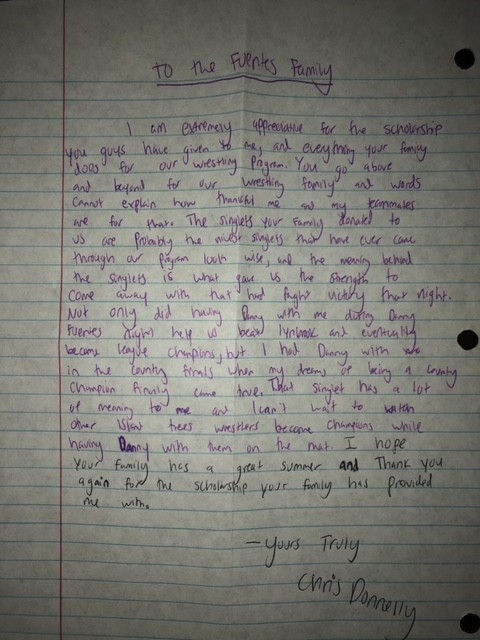 To the Fuentes Family
I am extremely appreciative for the scholarship
you guys have given to me, and everything your family
does for our wrestling program. You go above
and beyond for our wrestling family and words
cannot explain how thankful me and my teammates
are for that. The singlets your family donated to
us are probably the nicest singlets that have ever came
through our program look wise, and the meaning behind
the singlets is what gave us the strength to
come away with that hard fought victory that night.
Not only did having Danny with me during Danny
Fuentes night help us beat Lynbrook and eventually
become league champions, but I had Danny with me
in the county finals when my dreams of being a county
champion finally came true. That singlet has a lot
of meaning to me and I can't wait to watch
other Island trees wrestlers become champions while
having Danny with them on the mat. I hope
your family has a great summer and Thank you
again for the scholarship your family has provided
me with.
-Yours Truly
Chris Donnelly